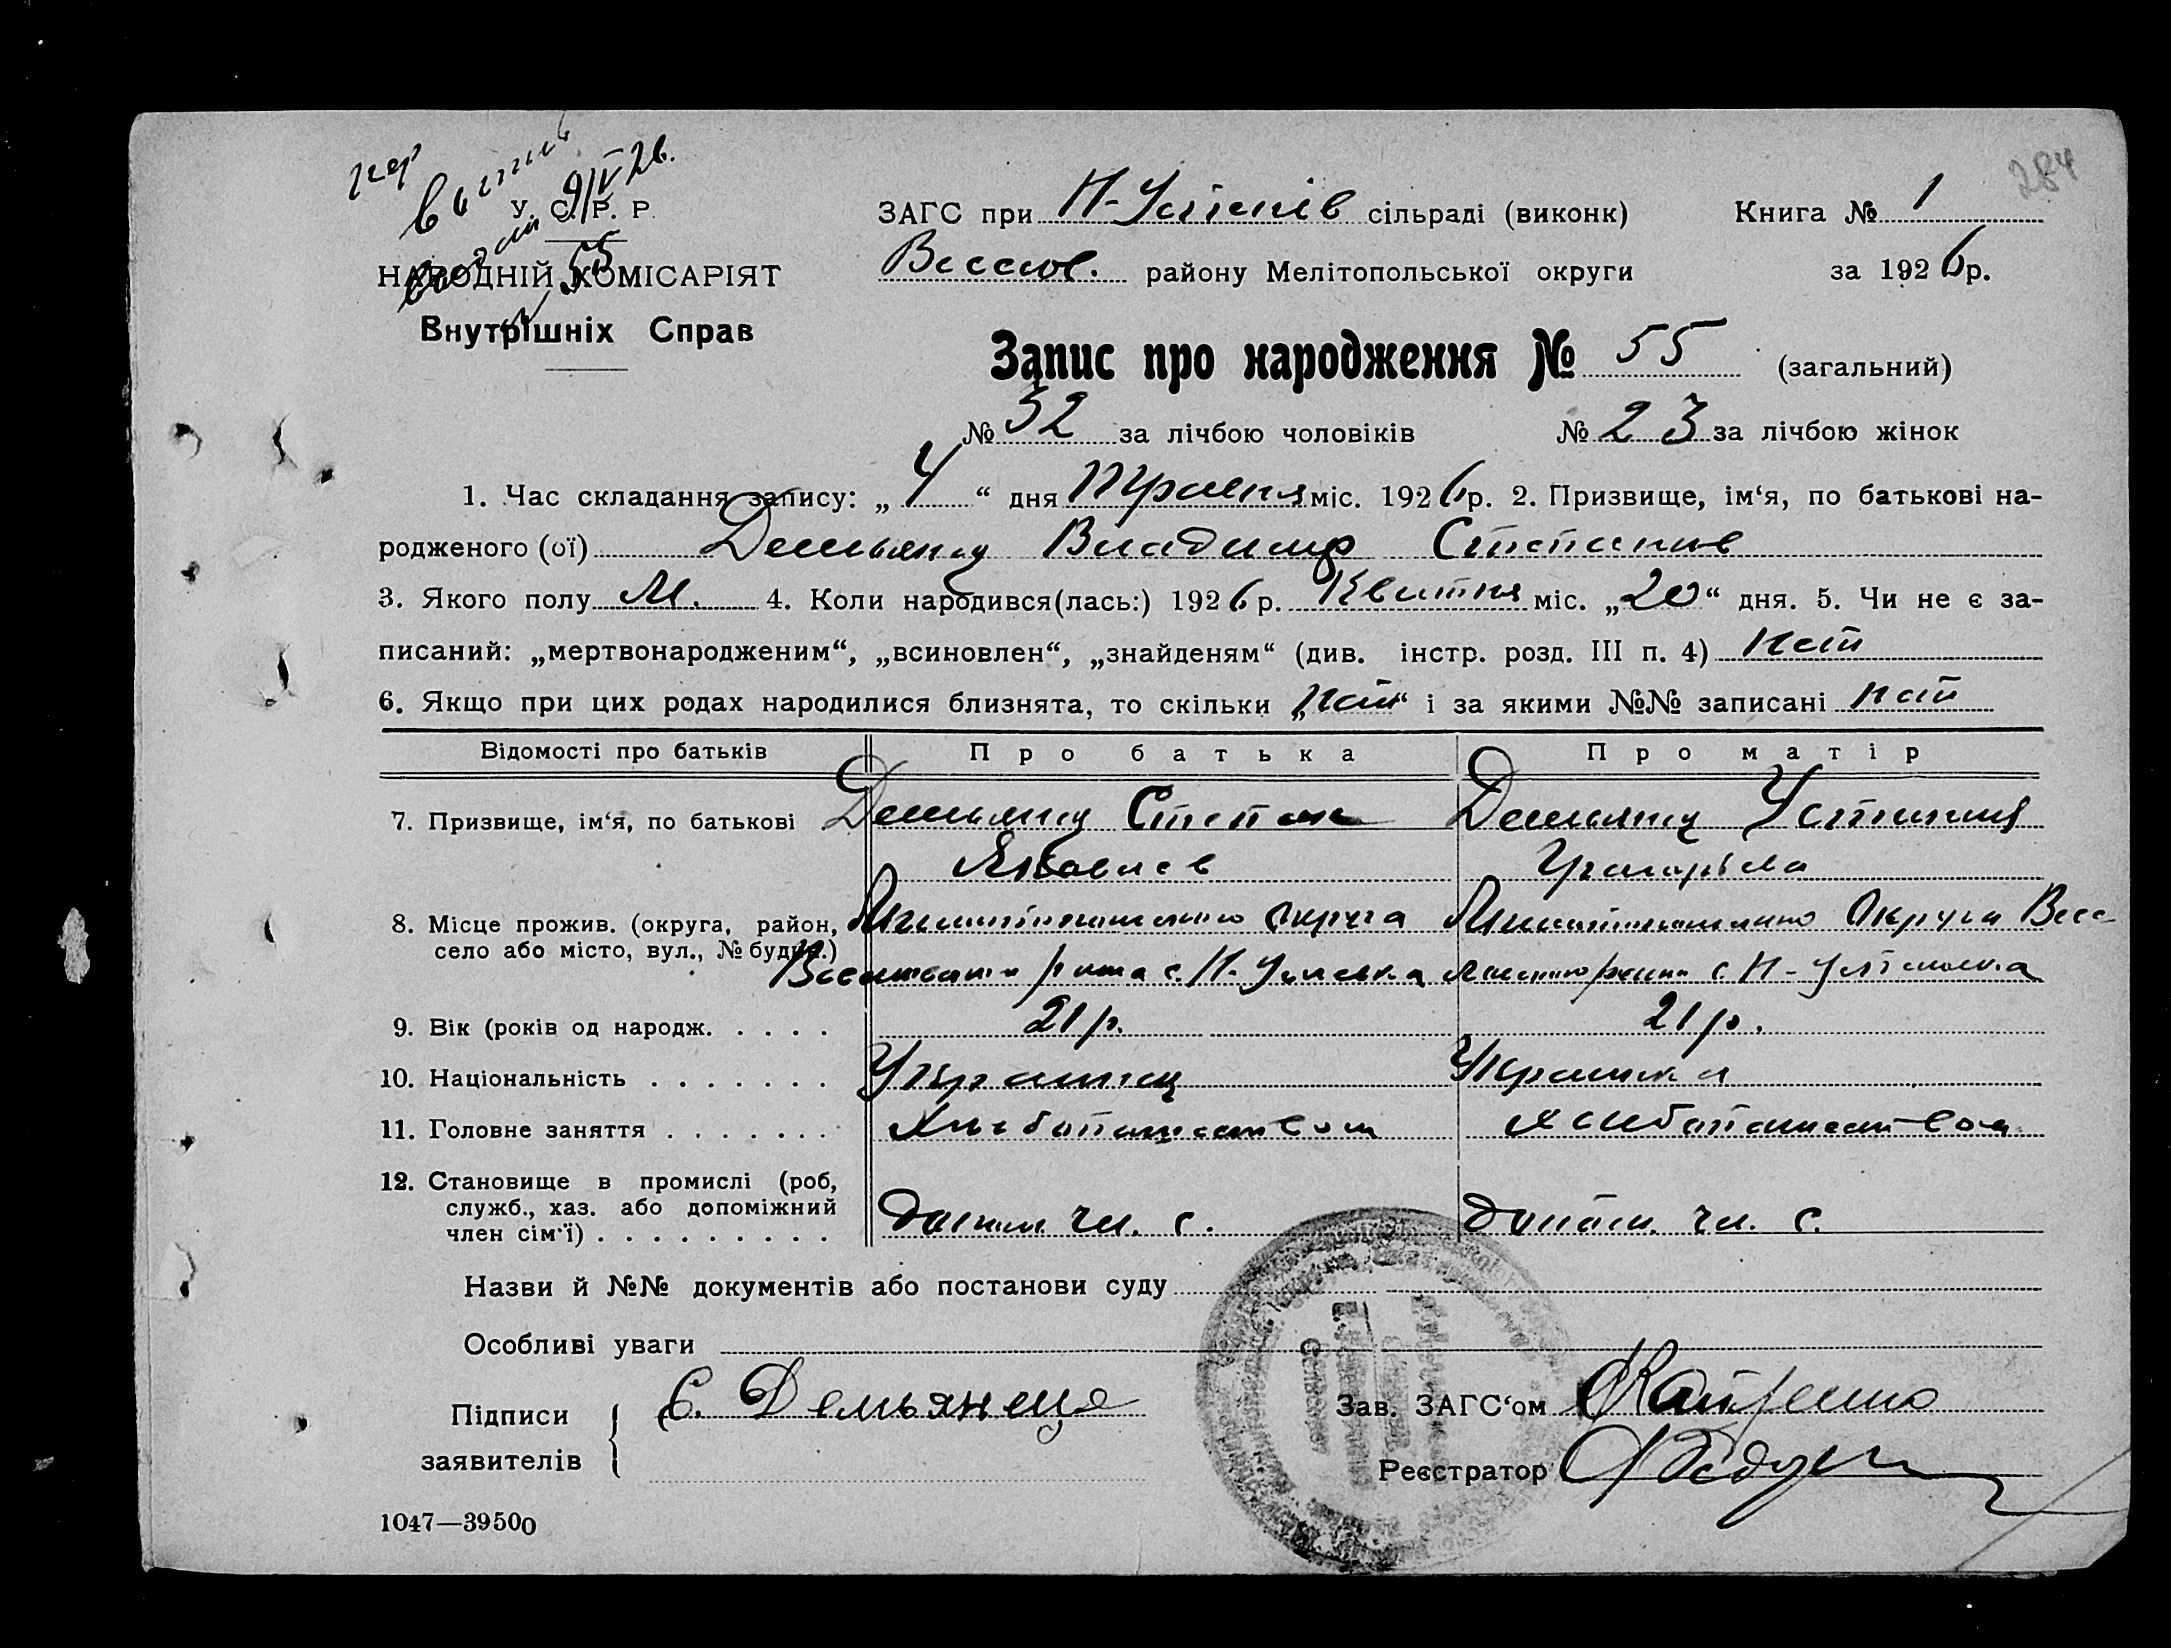 284
У. С. Р. Р.
9/V 26.
№ 55
НАРОДНІЙ КОМІСАРІЯТ
Внутрішніх Справ
ЗАГС при Н-Успенів сільраді (виконк) Книга № 1
Весело. району Мелітопольської округи за 1926 р.
Запис про народження № 55 (загальний)
№ 32 за лічбою чоловіків № 23 за лічбою жінок
1. Час складання запису: „ 4 “ дня Травня міс. 1926 р. 2. Призвище, ім‘я, по батькові на-
родженого (ої) Демьянец Владимир Степанов
3. Якого полу М. 4. Коли народився(лась:) 1926 р. Квитня міс. „20“ дня. 5. Чи не є за-
писаний: „мертвонародженим“, „всиновлен“, „знайденям“ (див. інстр. розд. III п. 4) нет
6. Якщо при цих родах народилися близнята, то скільки „нет“ і за якими №№ записані нет
Відомості про батьків Про батька Про матір
7. Призвище, ім‘я, по батькові Демьянец Степан Демьянец Устиния
Яковлев Григорьева
8. Місце прожив. (округа, район, округа Округа Весе-
село або місто, вул., № будин.) с. Н-Успеновка с. Н-Успеновка
9. Вік (років од народж. . . . . 21 р. 21 р.
10. Національність . . . . . . . Украинец Украинка
11. Головне заняття . . . . . . . Хлебопашеством Хлебопашеством
12. Становище в промислі (роб,
служб., хаз. або допоміжний
член сім‘ї) . . . . . . . . . Допом. чл. с. Допом. чл. с.
Назви й №№ документів або постанови суду
Особливі уваги
Підписи С. Демьянеця Зав. ЗАГС‘ом
заявителів Реєстратор
1047—39500